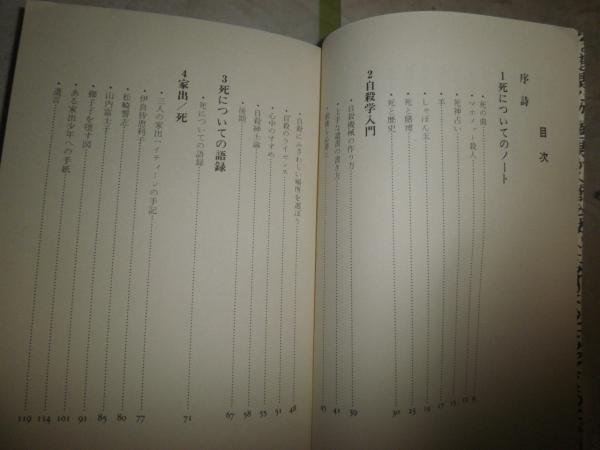 目次
序詩
1 死についてのノート
・死の虫 9
・マホメット殺人 12
・死神占い 15
・羊 17
・しゃぼん玉 19
・死と賭博 23
・死と歴史 30
2 自殺学入門
・自殺機械の作り方 39
・上手な遺書の書き方 41
・動機も必要だ 45
・自殺にふさわしい場所を選ぼう 48
・自殺のライセンス 51
・心中のすすめ 55
・自殺紳士論 58
・後期 67
3 死についての語録
・死についての語録 71
4 家出/死
・三人の家出ハイティーンの手記 77
・伊良皆恵利子 80
・松崎誓左 85
・山内富士子 91
・獅子子を堕す図 101
・ある家出少年への手紙 114
・遺言 119